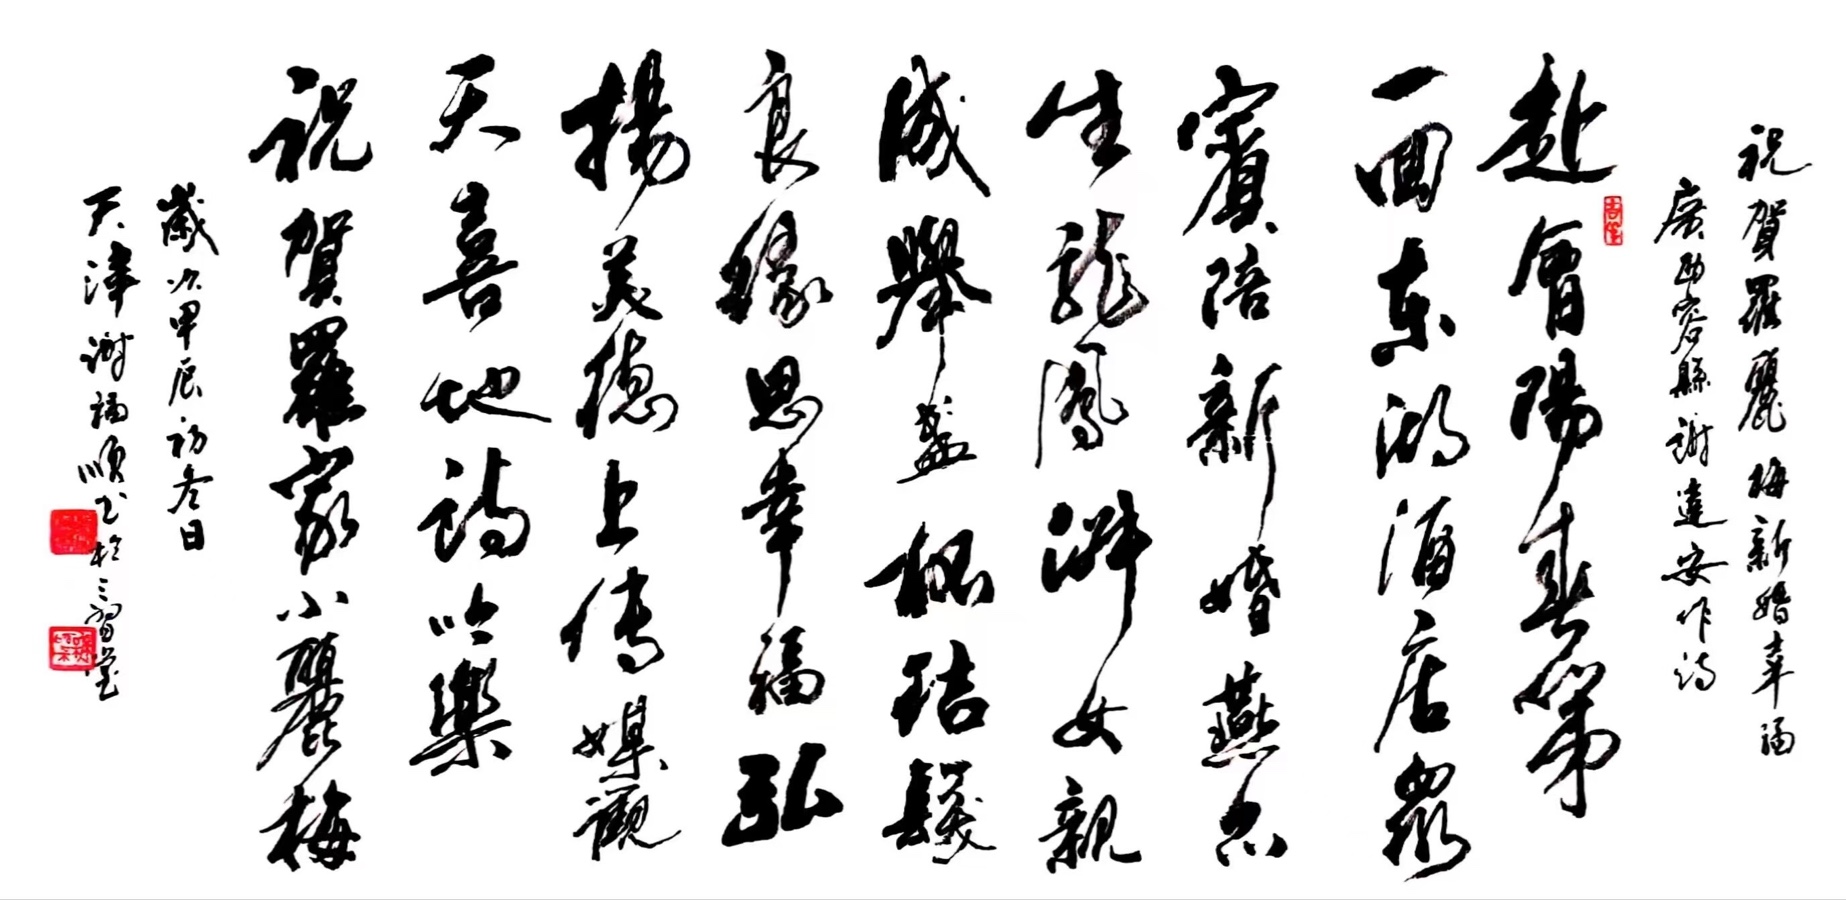 祝賀羅麗梅新婚幸福
廣西容縣謝達安作詩
赴會陽春第
一回東湖酒店眾
賓陪新婚燕尔
生龍鳳渊女親
成舉盃槐结髮
良緣思幸福弘
揚美德上傳媒觀
天喜地詩吟樂
祝賀羅家小麗梅
歲次甲辰初冬日
天津謝福順书於三習堂